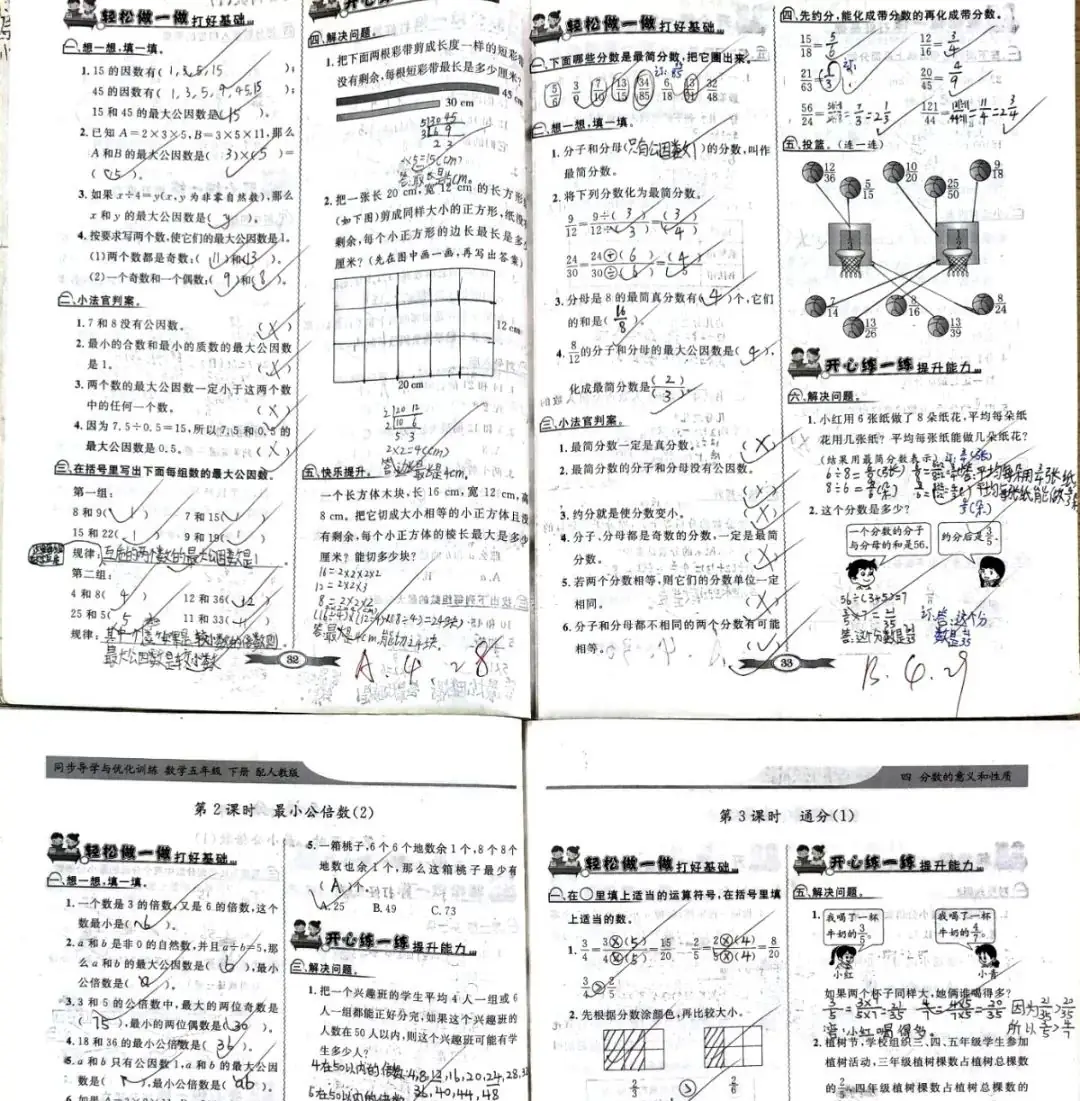 轻松做一做 打好基础
一、想一想,填一填。
1. 15 的因数有( 1,3,5,15 );
45 的因数有( 1,3,5,9,45,15 );
15 和 45 的最大公因数是( 15 )。
2. 已知 A=2×3×5,B=3×5×11,那么
A 和 B 的最大公因数是( 3 )×( 5 )=
( 15 )。
3. 如果 x÷4=y(x,y 为非零自然数),那么
x 和 y 的最大公因数是( y )。
4. 按要求写两个数,使它们的最大公因数是1。
(1)两个数都是奇数:( 11 )和( 13 )。
(2)一个奇数和一个偶数:( 9 )和( 8 )。
二、小法官判案。
1. 7 和 8 没有公因数。 ( X )
2. 最小的合数和最小的质数的最大公因数
是 1。 ( X )
3. 两个数的最大公因数一定小于这两个数
中的任何一个数。 ( X )
4. 因为 7.5÷0.5=15,所以 7.5 和 0.5 的
最大公因数是 0.5。 ( X )
三、在括号里写出下面每组数的最大公因数。
第一组:
8 和 9( 1 ) 7 和 15( 1 )
15 和 22( 1 ) 9 和 19( 1 )
规律:互质的两个数的最大公因数是1
第二组:
4 和 8( 4 ) 12 和 36( 12 )
25 和 5( 5 ) 11 和 33( 11 )
规律:
最大公因数是较小数
32
四、解决问题。
1. 把下面两根彩带剪成长度一样的短彩
没有剩余,每根短彩带最长是多少厘米?
45 cm
30 cm
5|30 45
3|6 9
2 3
3×5=15(cm)
2. 把一张长 20 cm,宽 12 cm 的长方形
(如下图)剪成同样大小的正方形,纸没
剩余,每个小正方形的边长最长是多
厘米?(先在图中画一画,再写出答案)
12 cm
20 cm
2|20 12
2|10 6
5 3
2×2=4(cm)
五、快乐提升。
一个长方体木块,长 16 cm,宽 12 cm,高
8 cm。把它切成大小相等的小正方体且没
有剩余,每个小正方体的棱长最大是多少
厘米?能切多少块?
16=2×2×2×2
12=2×2×3
8=2×2×2
(16÷4)×(12÷4)×(8÷4)=24(块)
A. 4. 28
轻松做一做 打好基础
一、下面哪些分数是最简分数,把它圈出来。
5/6 3/9 7/10 13/15 34/85 6/18 13/31 32/48
二、想一想,填一填。
1. 分子和分母(只有公因数1)的分数,叫作
最简分数。
2. 将下列分数化为最简分数。
9/12=9÷( 3 )/12÷( 3 )=( 3 )/( 4 )
24/30=24÷( 6 )/30÷( 6 )=( 4 )/( 5 )
3. 分母是 8 的最简真分数有( 4 )个,它们
的和是( 16/8 )。
4. 8/12的分子和分母的最大公因数是( 4 ),
化成最简分数是( 2 )/( 3 )。
三、小法官判案。
1. 最简分数一定是真分数。 ( X )
2. 最简分数的分子和分母没有公因数。
3. 约分就是使分数变小。 ( X )
4. 分子、分母都是奇数的分数,一定是最简
分数。 ( X )
5. 若两个分数相等,则它们的分数单位一定
相同。 ( X )
6. 分子和分母都不相同的两个分数有可能
相等。 ( √ )
33
四、先约分,能化成带分数的再化成带分数。
15/18=5/6 12/16=3/4
21/63= 20/45=4/9
56/24= =7/3=2 1/3 121/44= =11/4=2 3/4
五、投篮。(连一连)
12/36 5/15 10/20 25/50 9/18
7/14 13/26 8/16 13/39 8/24
开心练一练 提升能力
六、解决问题。
1. 小红用 6 张纸做了 8 朵纸花,平均每朵纸
花用几张纸?平均每张纸能做几朵纸花?
(结果用最简分数表示)
2. 这个分数是多少?
一个分数的分子
与分母的和是56。
约分后是3/5。
56÷(3+5)=7
B. 4. 29
同步导学与优化训练 数学五年级 下册 配人教版
第 2 课时 最小公倍数(2)
轻松做一做 打好基础
一、想一想,填一填。
1. 一个数是 3 的倍数,又是 6 的倍数,这个
数最小是( 6 )。
2. a 和 b 是非 0 的自然数,并且 a÷b=5,那
么 a 和 b 的最大公因数是( b ),最小
公倍数是( a )。
3. 3 和 5 的公倍数中,最大的两位奇数是
( 75 ),最小的两位偶数是( 30 )。
4. 18 和 36 的最小公倍数是( 36 )。
5. a 和 b 只有公因数 1,a 和 b 的最大公因
数是( 1 ),最小公倍数是( ab )。
5. 一箱桃子,6 个 6 个地数余 1 个,8 个 8 个
地数也余 1 个,那么这箱桃子最少有
( A )个。
A. 25 B. 49 C. 73
开心练一练 提升能力
三、解决问题。
1. 把一个兴趣班的学生平均 4 人一组或 6
人一组都能正好分完,如果这个兴趣班的
人数在 50 人以内,则这个兴趣班可能有学
生多少人?
4在50以内的倍数:4,8,12,16,20,24,28,32
36,40,44,48
四 分数的意义和性质
第 3 课时 通分(1)
轻松做一做 打好基础
一、在○里填上适当的运算符号,在括号里填
上适当的数。
1. 3/4=3×(5)/4×(5)=15/20 2/5=2×(4)/5×(4)=8/20
3/4>2/5
2. 先根据分数涂颜色,再比较大小。
2/3 > 2/6
开心练一练 提升能力
五、解决问题。
1. 我喝了一杯
牛奶的3/5。
我喝了一杯
牛奶的4/7。
小红 小青
如果两个杯子同样大,她俩谁喝得多?
3/5=3×7/5×7=21/35 4/7=4×5/7×5=20/35 因为21/35>20/35
答:小红喝得多。 所以3/5>4/7
2. 植树节,学校组织三、四、五年级学生参加
植树活动,三年级植树棵数占植树总棵数
的2/5,四年级植树棵数占植树总棵数的